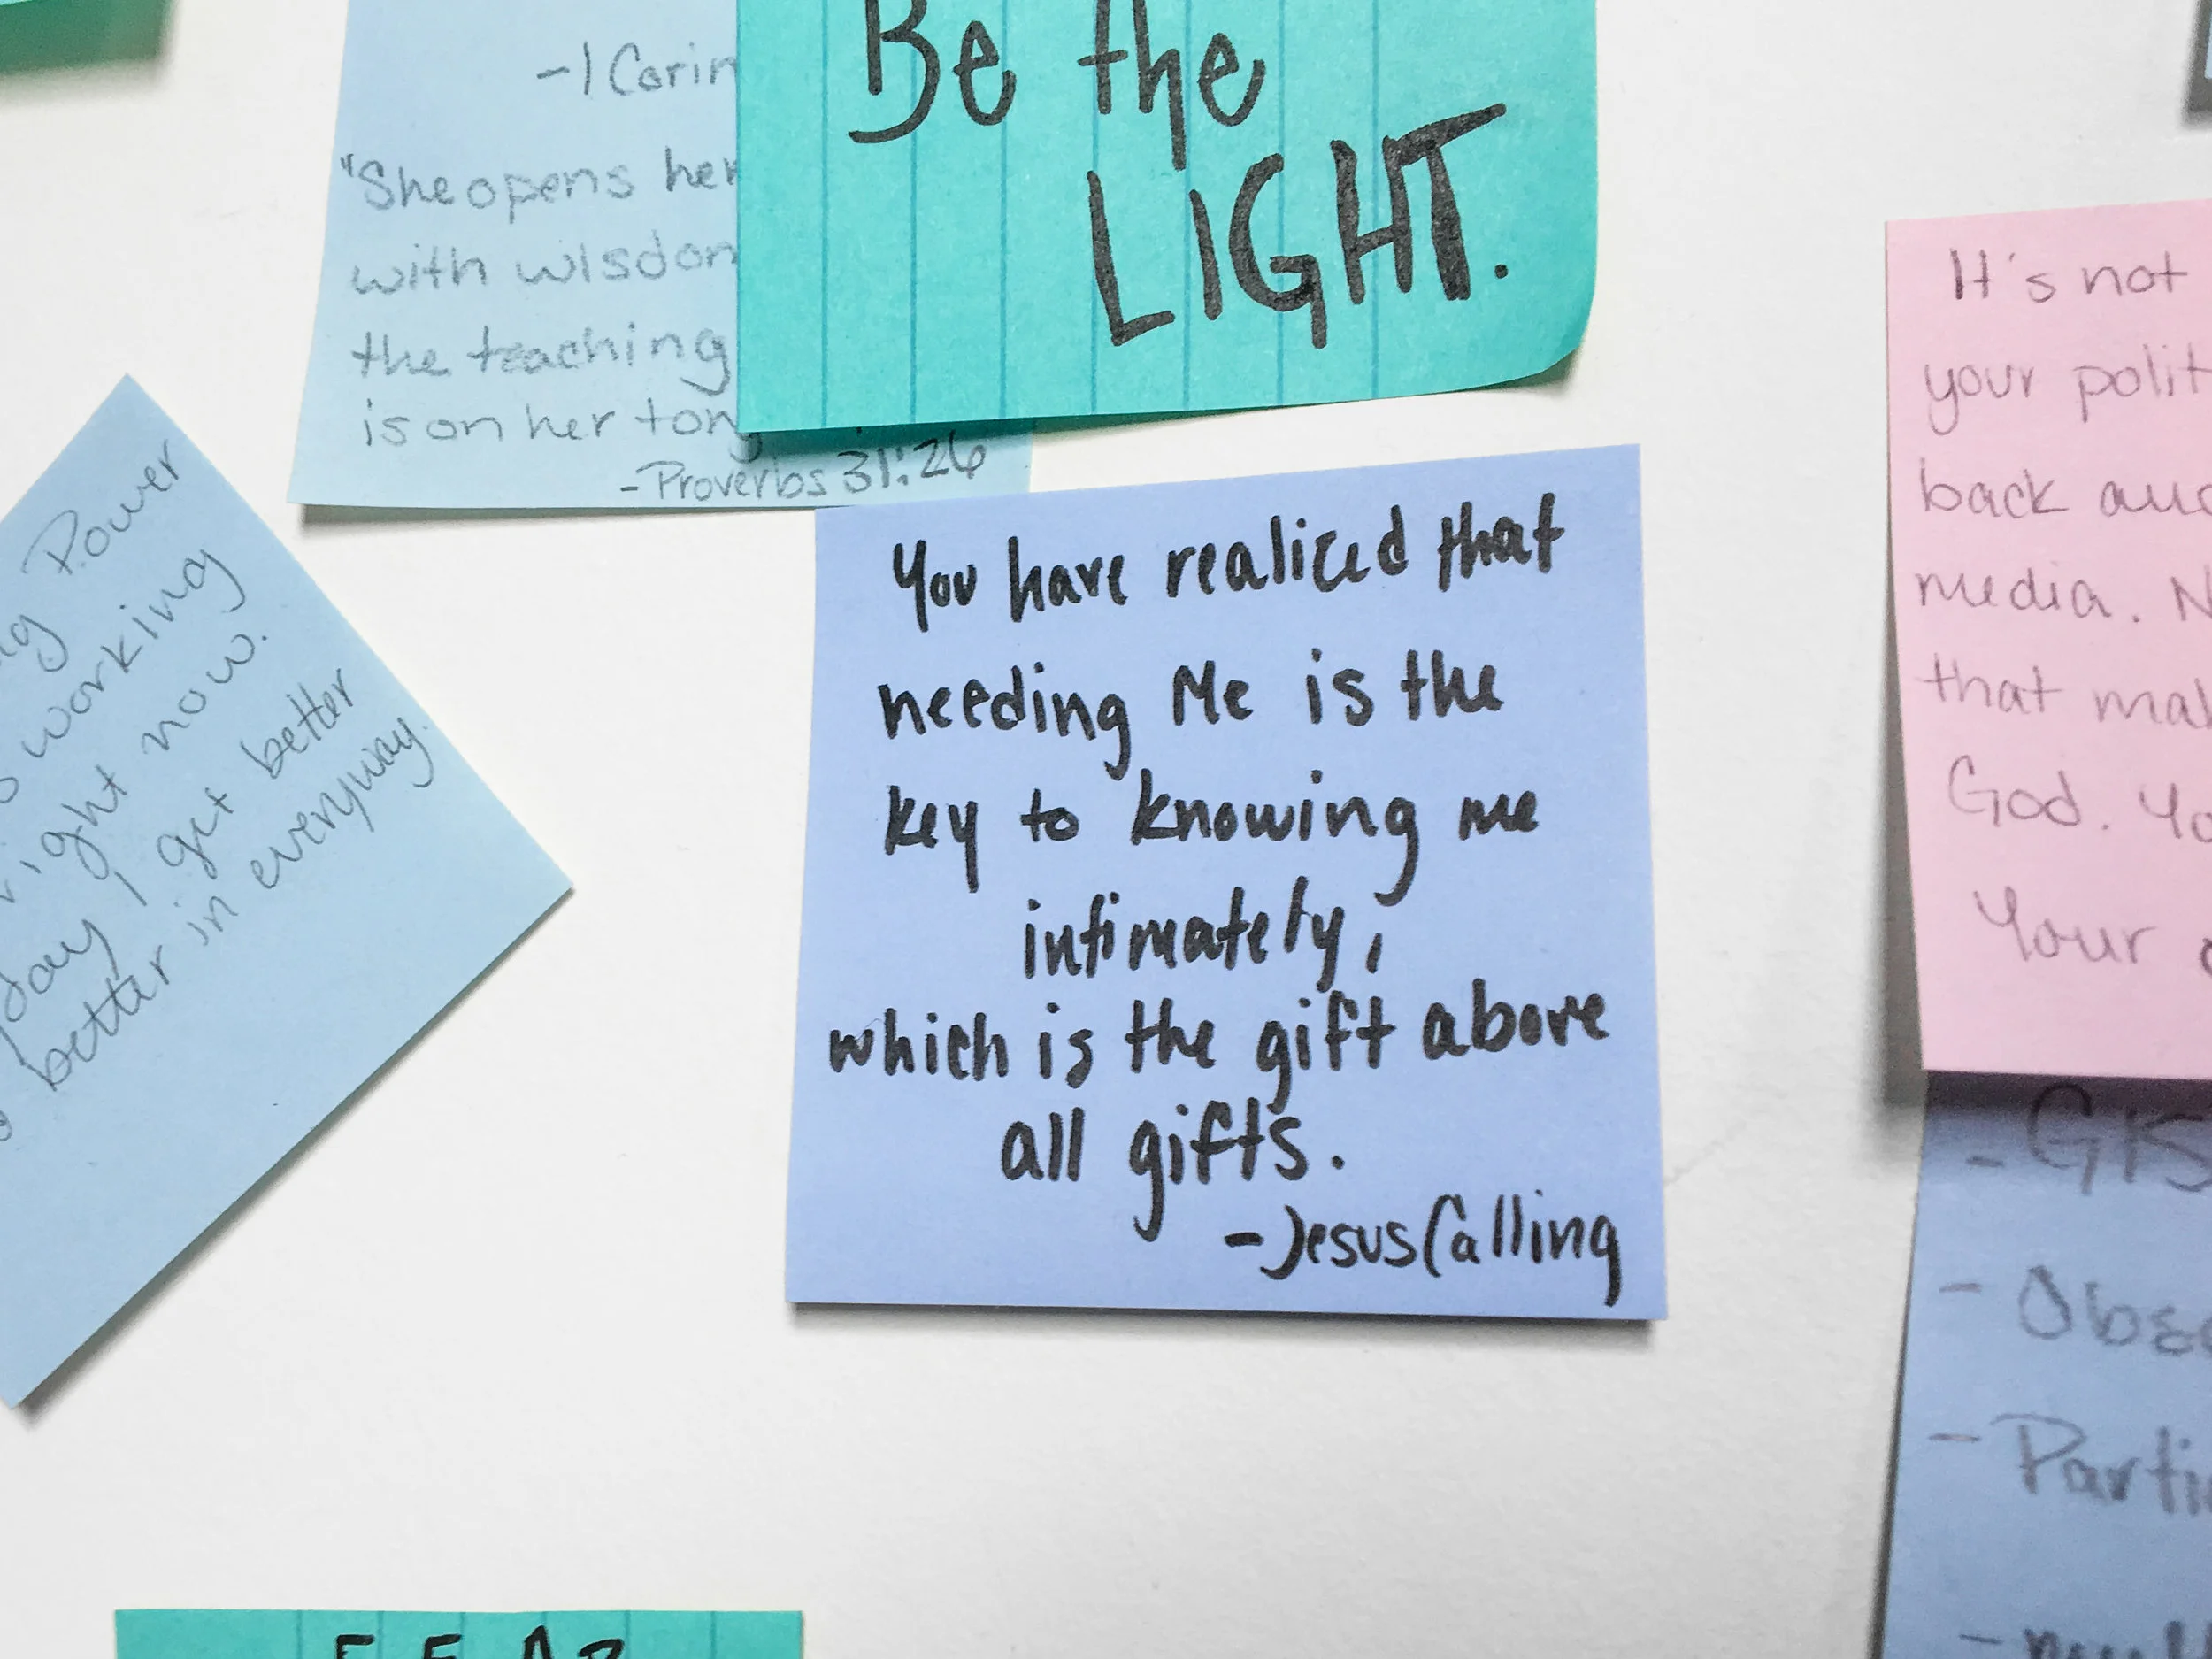 -1 Corin
"She opens her
with wisdom
the teaching
is on her tong
-Proverbs 31:26
Be the
LIGHT.
Power
working
right now.
day I get better
better in everyway.
You have realized that
needing Me is the
key to knowing me
intimately,
which is the gift above
all gifts.
-Jesus Calling
It's not
your polit
back
media. N
that
God. Yo
Your
- GIS
- Obse
- Parti
FEAR